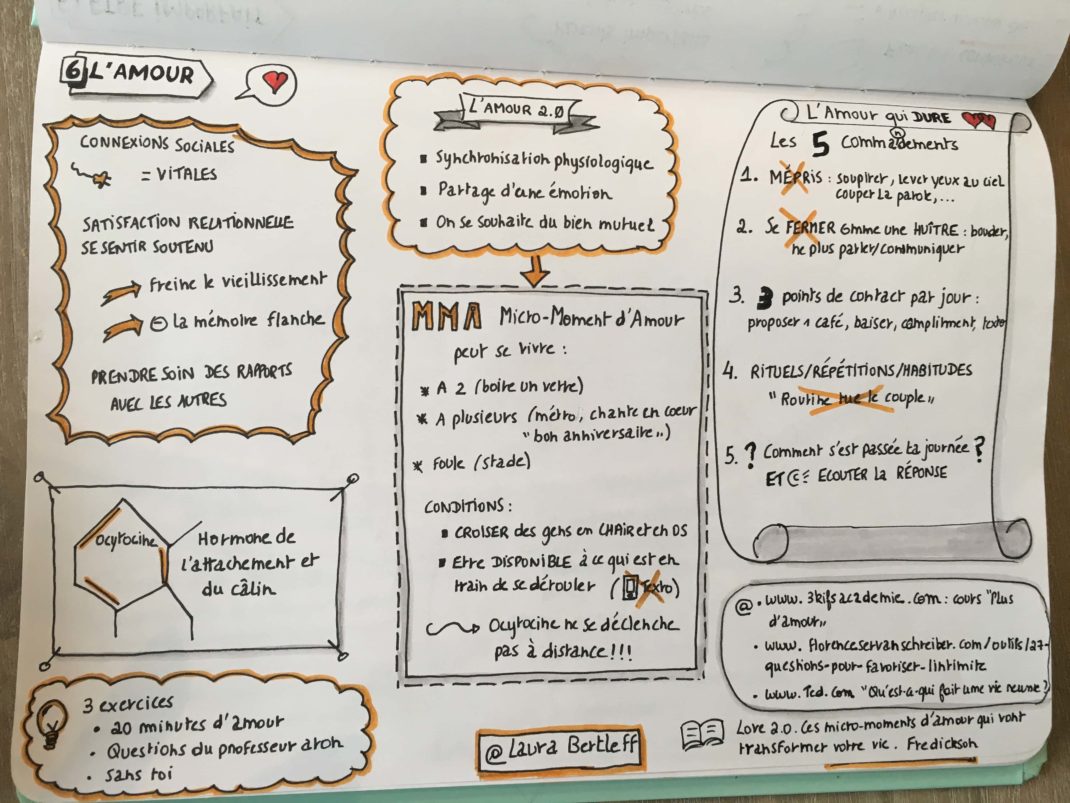 6 L'AMOUR
CONNEXIONS SOCIALES
= VITALES
SATISFACTION RELATIONNELLE
SE SENTIR SOUTENU
Freine le vieillissement
⊖ la mémoire flanche
PRENDRE SOIN DES RAPPORTS
AVEC LES AUTRES
Ocytocine
Hormone de
l'attachement et
du câlin
3 exercices
• 20 minutes d'amour
• Questions du professeur aron
• Sans toi
L'AMOUR 2.0
▪ Synchronisation physiologique
▪ Partage d'une émotion
▪ On se souhaite du bien mutuel
MMA Micro-Moment d'Amour
peut se vivre :
* A 2 (boire un verre)
* A plusieurs (métro, chante en coeur
"bon anniversaire")
* Foule (stade)
CONDITIONS :
▪ CROISER des gens en CHAIR et en OS
▪ Etre DISPONIBLE à ce qui est en
train de se dérouler ( Texto)
Ocytocine ne se déclenche
pas à distance!!!
@Laura Bertleff
L'Amour qui DURE
Les 5 Commandements
1. MÉPRIS : soupirer, lever yeux au ciel
couper la parole,...
2. Se FERMER comme une HUÎTRE : bouder,
ne plus parler/communiquer
3. 3 points de contact par jour :
proposer 1 café, baiser, compliment, texto
4. RITUELS/RÉPÉTITIONS/HABITUDES
"Routine tue le couple"
5. ? Comment s'est passée ta journée ?
ET ECOUTER la RÉPONSE
@ • www.3kifsacademie.com : cours "Plus
d'amour"
• www.florenceservanschreiber.com/outils/27-
questions-pour-favoriser-lintimite
• www.Ted.com "Qu'est-a-qui fait une vie
Love 2.0. Ces micro-moments d'amour qui vont
transformer votre vie. Fredickson